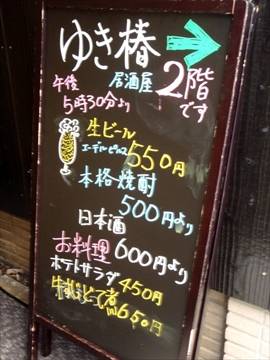 ゆき椿
居酒屋 2階です
午後
5時30分より
生ビール
エーデルピルス 550円
本格焼酎
500円より
日本酒
お料理 600円より
ポテトサラダ 450円
牛すじどて煮 650円